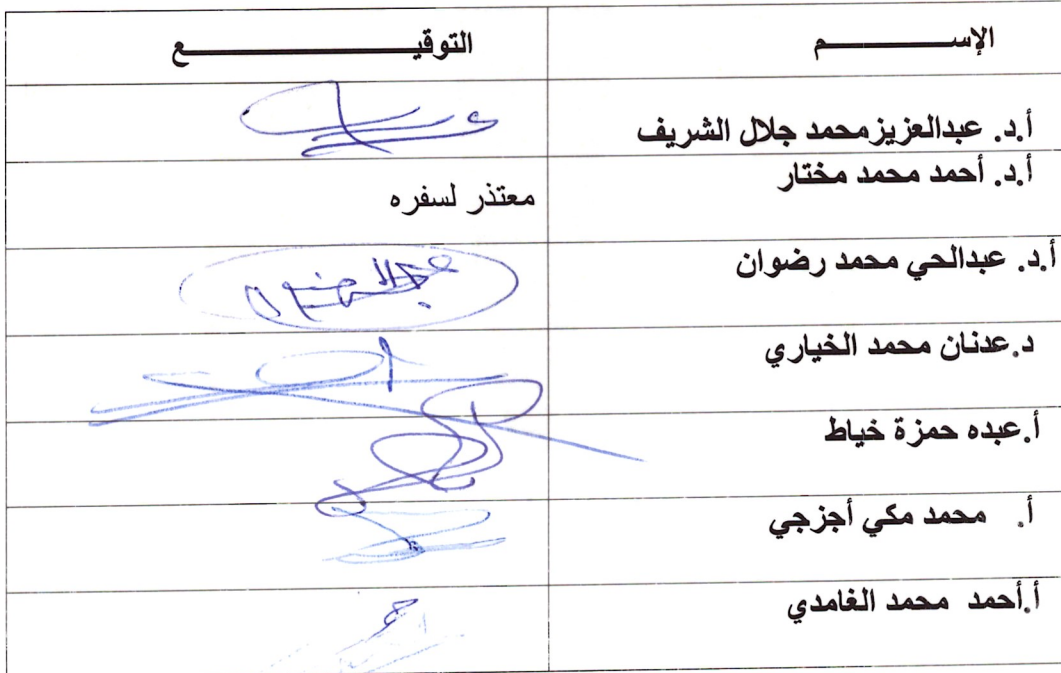 الإســـــــم التوقيـــــــــع
أ.د. عبدالعزيز محمد جلال الشريف
أ.د. أحمد محمد مختار معتذر لسفره
أ.د. عبدالحي محمد رضوان
د.عدنان محمد الخياري
أ.عبده حمزة خياط
أ. محمد مكي أجزجي
أ.أحمد محمد الغامدي